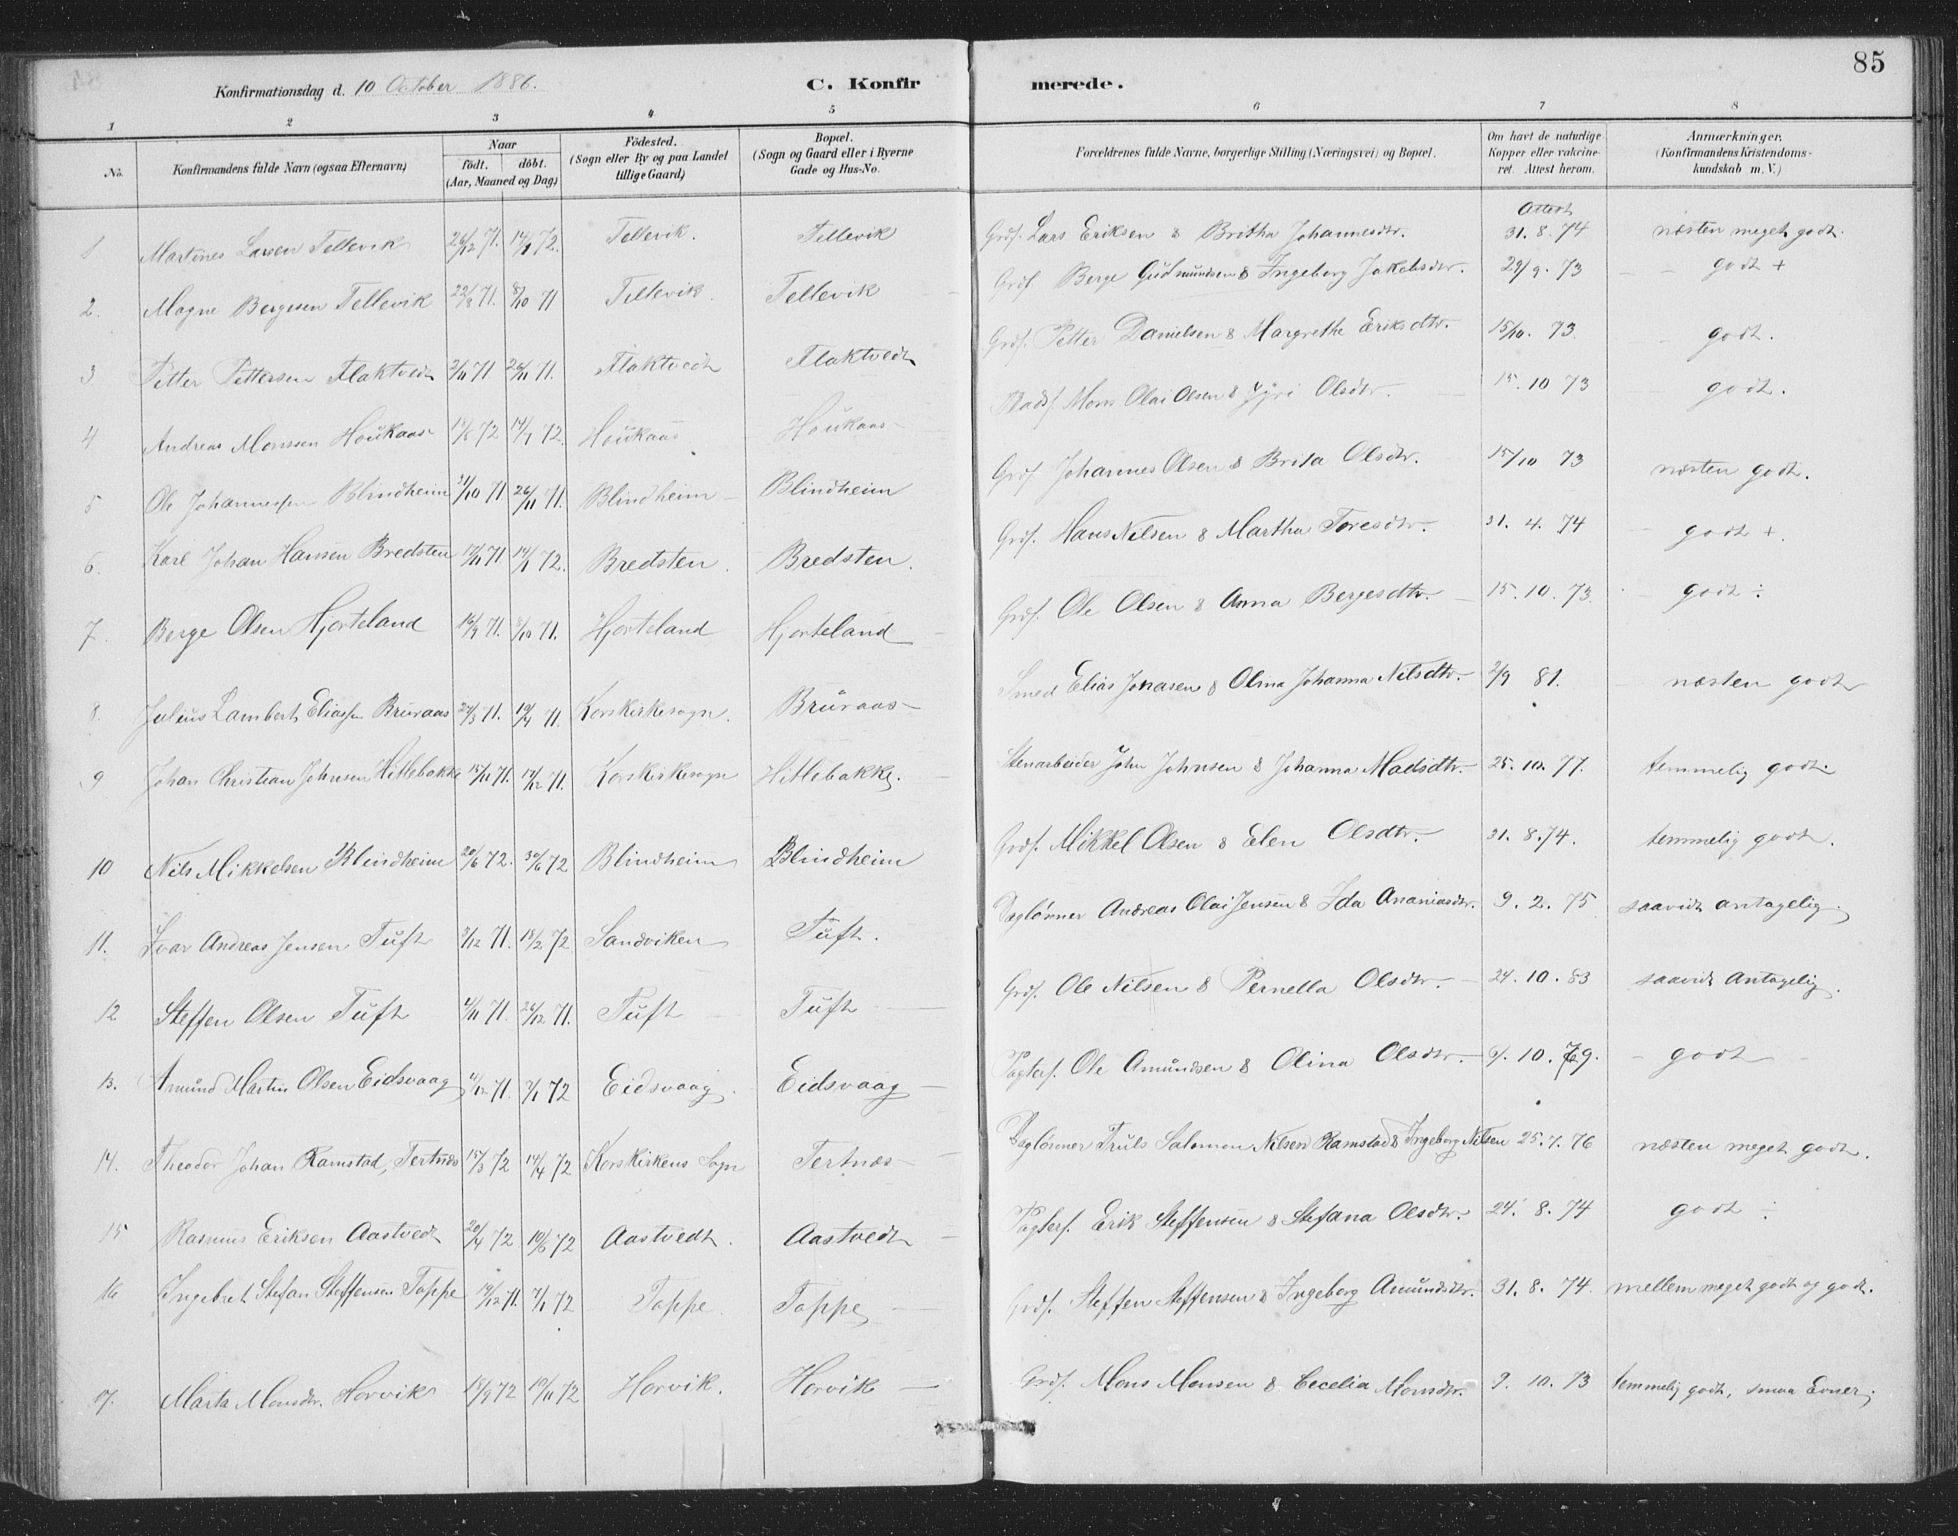 85
Konfirmationsdag d. 10 October 1886. C. Konfir merede.
1 2 3 4 5 6 7 8
No. Konfirmandens fulde Navn (ogsaa Efternavn) Naar födt. döbt. (Aar, Maaned og Dag) Födested. (Sogn eller By og paa Landet tillige Gaard) Bopæl. (Sogn og Gaard eller i Byerne Gade og Hus-No. Forældrenes fulde Navne, borgerlige Stilling (Næringsvei) og Bopæl. Om havt de naturlige Kopper eller vakcineret. Attest herom. Anmærkninger. (Konfirmandens Kristendomskundskab m. V.)
1 Martines Larsen Tellevik 26/12 71. 14/1 72. Tellevik. Tellevik Grdf. Lars Eriksen & Britha Johannesdtr. Attest 31. 8. 74 næsten meget godt.
2. Magne Bergesen Tellevik 8/10 71 Tellevik. Tellevik Grdf Berge Gudmundsen & Ingeborg Jakobsdtr. 29/9. 73 godt +
3 Petter Pettersen Flaktvedt 2/11 71 26/11 71. Flaktvedt Flaktvedt Grdf. Petter Danielsen & Margrethe Eriksdtr. 15/10. 73 godt.
4 Andreas Monssen Houkaas 72 14/7 72. Houkaas Houkaas Pladsf. Mons Olai Olsen & Olsdtr. 15. 10 73 godt.
5 Ole Johannessen Blindheim 31/10 71 26/11 71. Blindheim Blindheim Grdf. Johannes Olsen & Brita Olsdtr. 15/10 73 næsten godt.
6. Karl Johan Hansen Bredsten 17/11 71 14/1 72. Bredsten. Bredsten. Grdf. Hans Nilsen & Martha Toresdtr. 31. 4. 74 godt +.
7. Berge Olsen Hjorteland 16/9 71. 8/10 71. Hjorteland Hjorteland Grdf. Ole Olsen & Anna Bergesdtr. 15. 10. 73. godt ÷
8. Julius Lambert Eliassen Bruraas 27/3 71. 19/4 71. Korskirkesogn. Bruraas Smed Elias Jonasen & Olina Johanna Nilsdtr. 2/9 81. næsten godt
9 Johan Christian Johnsen Hitlebakke 15/11 71. 17/12 71. Korskirkesogn Hitlebakke. Stenarbeider John Johnsen & Johanna Madsdtr. 25. 10. 77. temmelig godt.
10 Nils Mikkelsen Blindheim 20/6 72. 30/6 72 Blindheim Blindheim Grdf. Mikkel Olsen & Elen Olsdtr. 31. 8. 74. temmelig godt.
11. Ivar Andreas Jensen Tuft 3/12 71. 18/2 72 Sandviken Tuft. Daglönner Andreas Olai Jensen & Ida Ananiasdtr. 9. 2. 75 saavidt antagelig.
12 Steffen Olsen Tuft 4/11 71. 26/12 71. Tuft Tuft Grdf. Ole Nilsen & Pernella Olsdtr. 24. 10. 83 saavidt Antagelig.
13. Amund Martin Olsen Eidsvaag 11/12 71. 7/1 72 Eidsvaag. Eidsvaag Pagterf. Ole Amundsen & Olina Olsdtr. 10. 79. godt
14. Theodor Johan Ramstad, Tertnæs 15/3 72 14/4 72 Korskirkens Sogn Tertnæs Daglönner Truls Salomon Nilsen Ramstad & Ingeborg Nilsen 25. 7. 76 næsten meget godt.
15 Rasmus Eriksen Aastvedt 20/4 72 19/5 72 Aastvedt. Aastvedt Pagterf. Erik Steffensen & Stefana Olsdtr. 24. 8. 74 godt ÷
16 Ingebret Stefan Steffensen Toppe 19/12 71. 7/1 72 Toppe. Toppe Grdf. Steffen Steffensen & Ingeborg Amundsdtr. 31. 8. 74. mellem meget godt og godt.
17. Marta Monsdtr. Horvik 18/9 72 10/11 72 Horvik. Horvik Grdf. Mons Monsen & Cecelia Monsdtr. 9. 10. 73 temmelig godt, smaa Evner.